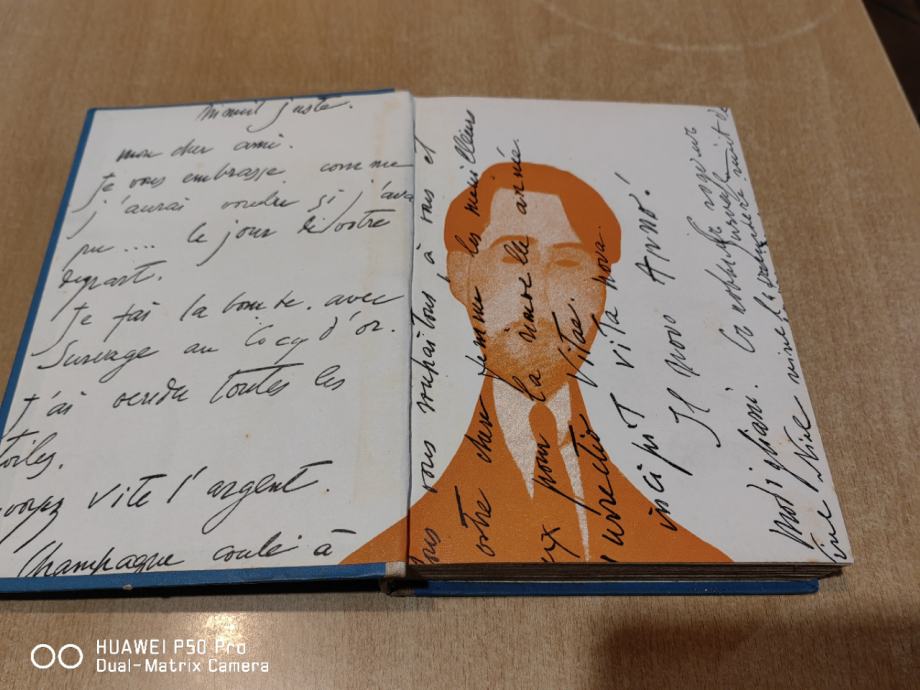 minuit juste.
mon cher ami.
je vous embrasse comme
j'aurai voulu si j'avais
pu .... le jour de votre
depart.
Je fais la bombe avec
Survage au Cocq d'or.
J'ai vendu toutes les
toiles.
voyez vite l'argent
Champagne coule à
vous souhaitons à vous et
votre chere femme les meilleurs
pour la nouvelle année
Vitae.
incipit vita nova.
Il novo Anno!
Modigliani.
HUAWEI P50 Pro
Dual-Matrix Camera